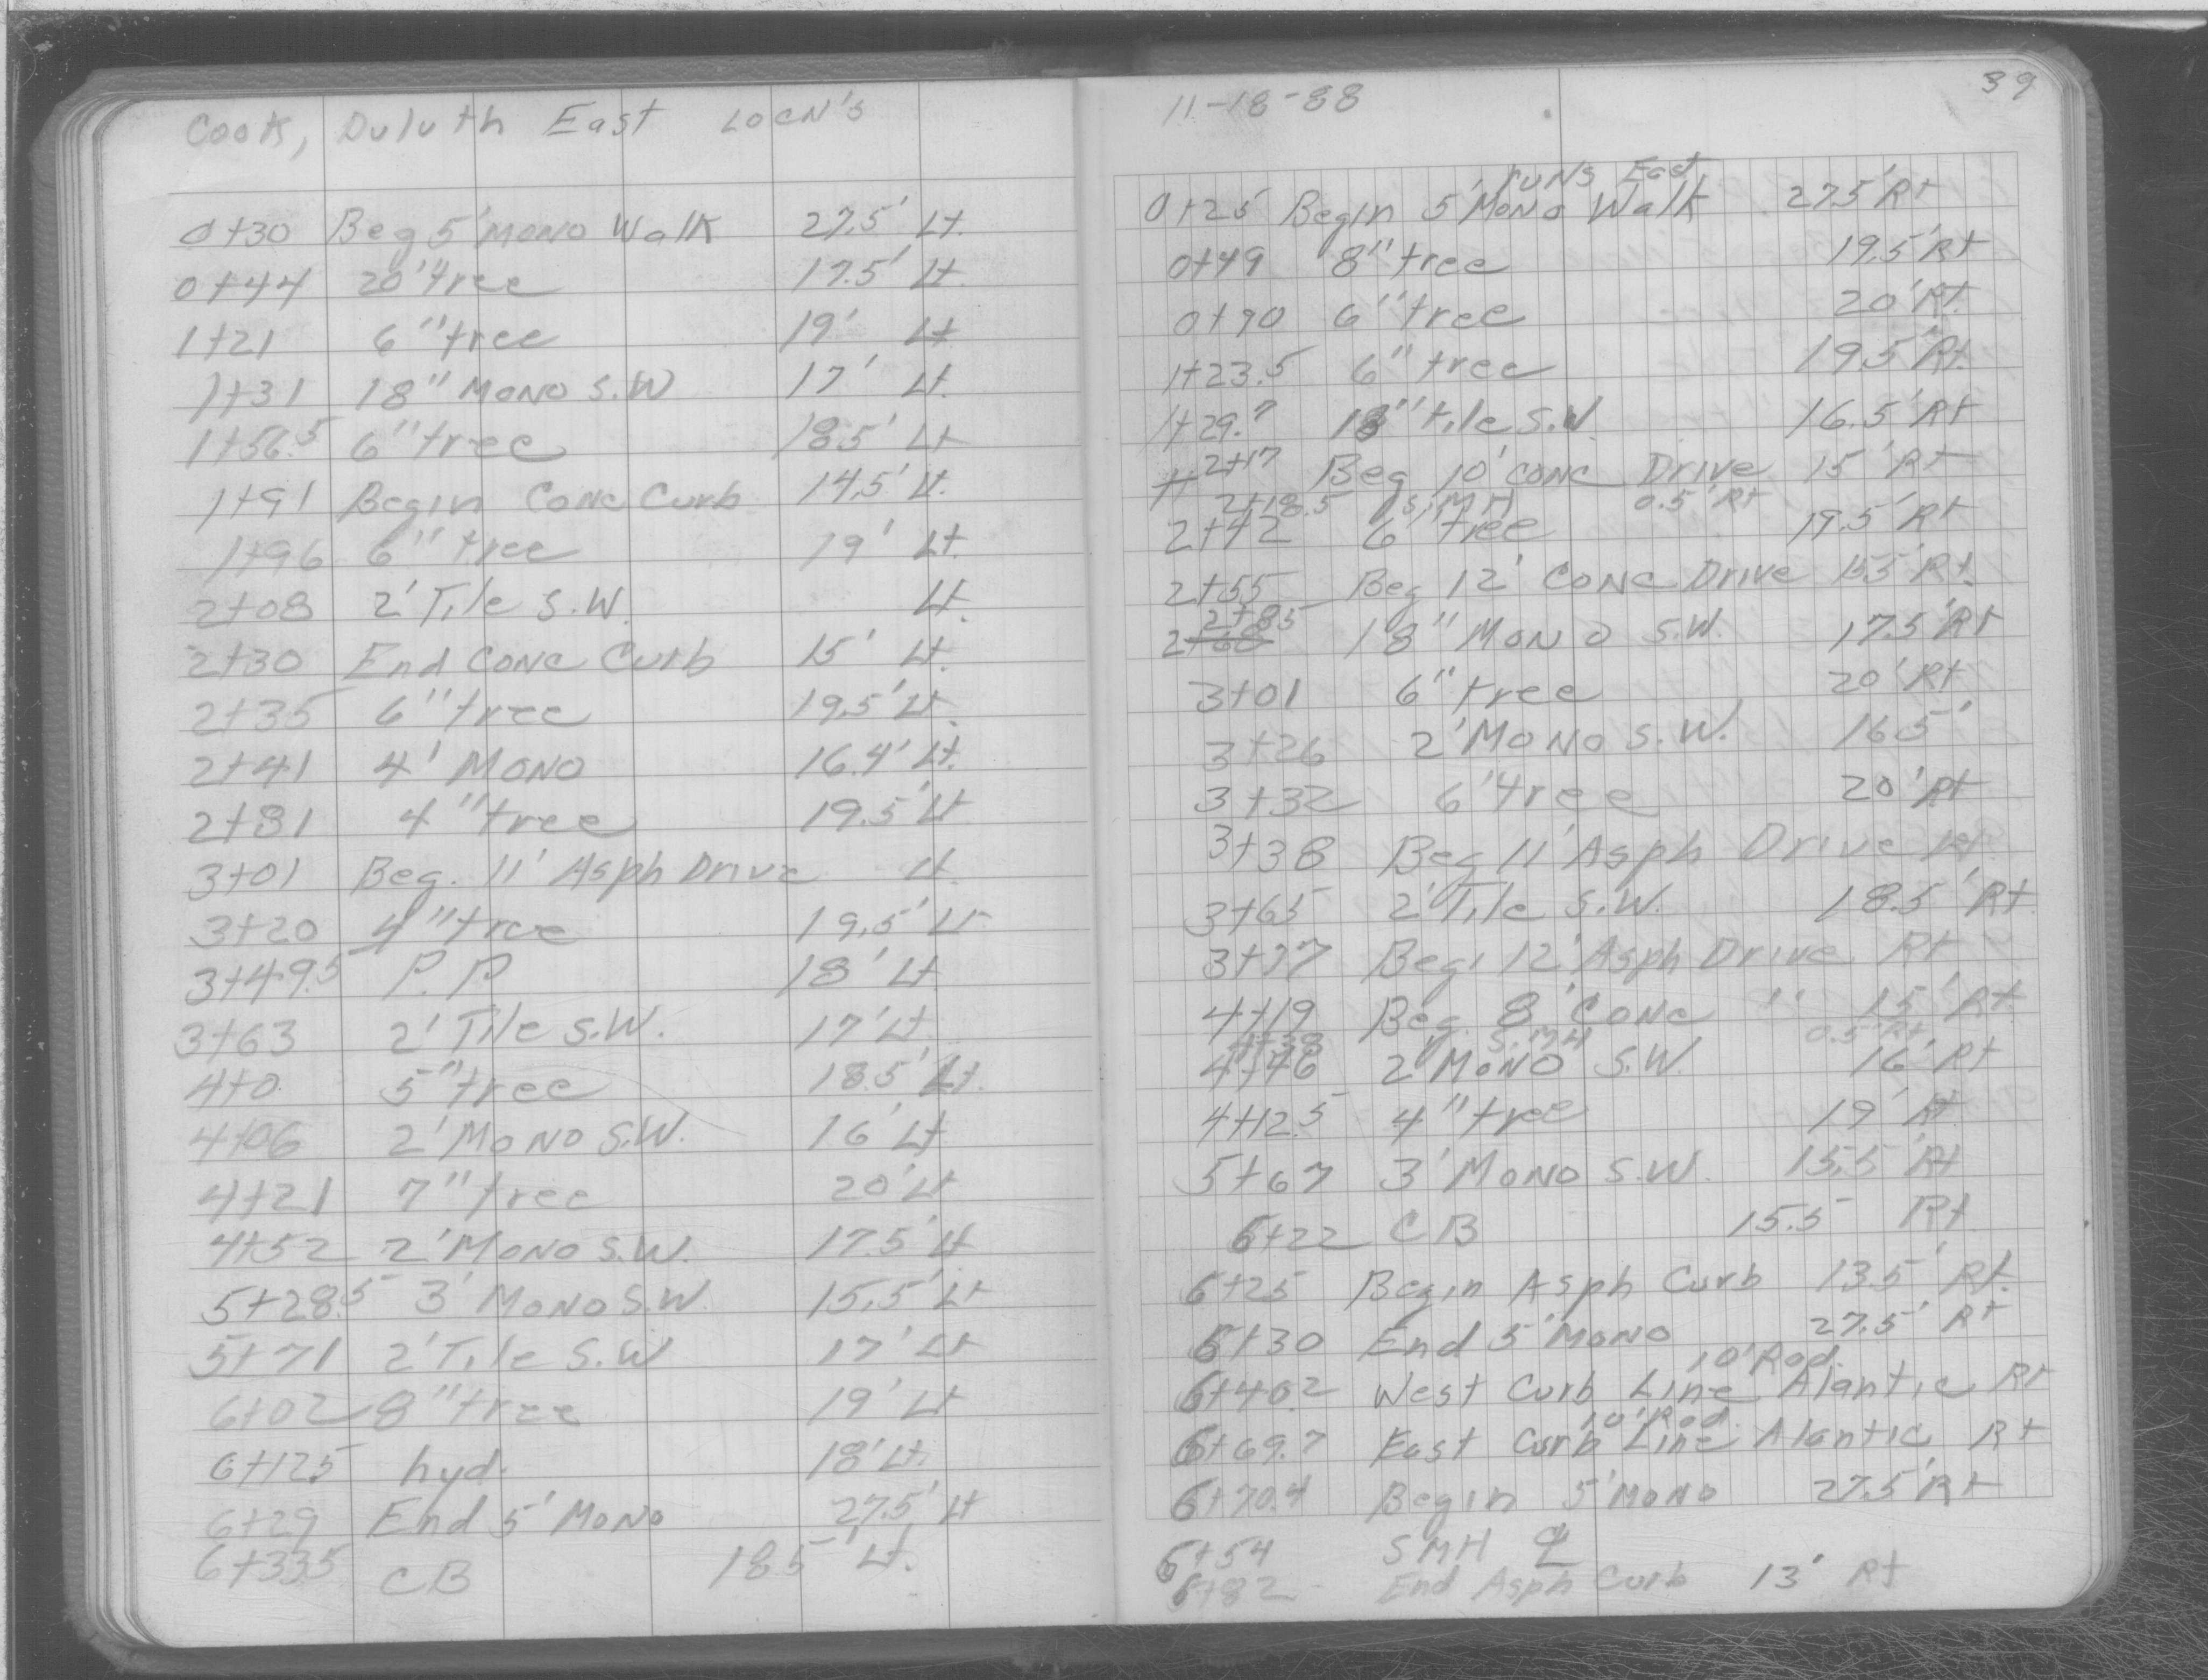 Cook, Duluth East Locn's
0+30 Beg 5' Mono Walk 27.5' Lt.
0+44 20" tree 17.5' Lt.
1+21 6" tree 19' Lt
1+31 18" Mono S.W 17' Lt.
1+56.5 6" tree 18.5' Lt
1+91 Begin Conc Curb 14.5' Lt.
1+96 6" tree 19' Lt.
2+08 2' Tile S.W. Lt.
2+30 End Conc Curb 15' Lt.
2+35 6" tree 19.5' Lt.
2+41 4' Mono 16.4' Lt.
2+81 4" tree 19.5' Lt
3+01 Beg. 11' Asph Drive Lt
3+20 4" tree 19.5' Lt
3+49.5 P.P 18' Lt
3+63 2' Tile S.W. 17' Lt
4+0 5" tree 18.5' Lt.
4+06 2' Mono S.W. 16' Lt
4+21 7" tree 20' Lt
4+52 2' Mono S.W. 17.5' Lt
5+28.5 3' Mono S.W. 15.5' Lt
5+71 2' Tile S.W 17' Lt
6+02 8" tree 19' Lt
6+12.5 hyd. 18' Lt.
6+29 End 5' Mono 27.5' Lt
6+33.5 CB 18.5' Lt.
11-18-88 39
runs East
0+25 Begin 5' Mono Walk 27.5' Rt
0+49 8" tree 19.5' Rt
0+90 6" tree 20' Rt.
1+23.5 6" tree 19.5' Rt.
1+29.7 18" tile S.W. 16.5' Rt
2+17 Beg 10' conc Drive 15' Rt
2+18.5 S.MH 0.5' Rt
2+42 6" tree 19.5' Rt
2+55 Beg 12' Conc Drive 15.5' Rt.
2+85
2+68 18" Mono S.W. 17.5' Rt
3+01 6" tree 20' Rt
3+26 2' Mono S.W. 16.5'
3+32 6" tree 20' Rt
3+38 Beg 11' Asph Drive Rt
3+65 2' Tile S.W. 18.5' Rt
3+77 Beg. 12' Asph Drive Rt
4+19 Beg. 8' Conc " 15' Rt.
4+38 S.MH 0.5' Rt
4+46 2' Mono S.W. 16' Rt
4+12.5 4" tree 19' Rt
5+67 3' Mono S.W. 15.5' Rt
6+22 CB 15.5 Rt
6+25 Begin Asph Curb 13.5' Rt.
6+30 End 5' Mono 27.5' Rt
10' Rad.
6+40.2 West Curb Line Alantic Rt
10' Rad.
6+69.7 East Curb Line Alantic Rt
6+70.4 Begin 5' Mono 27.5' Rt
6+54 SMH ℄
6+82 End Asph Curb 13' Rt